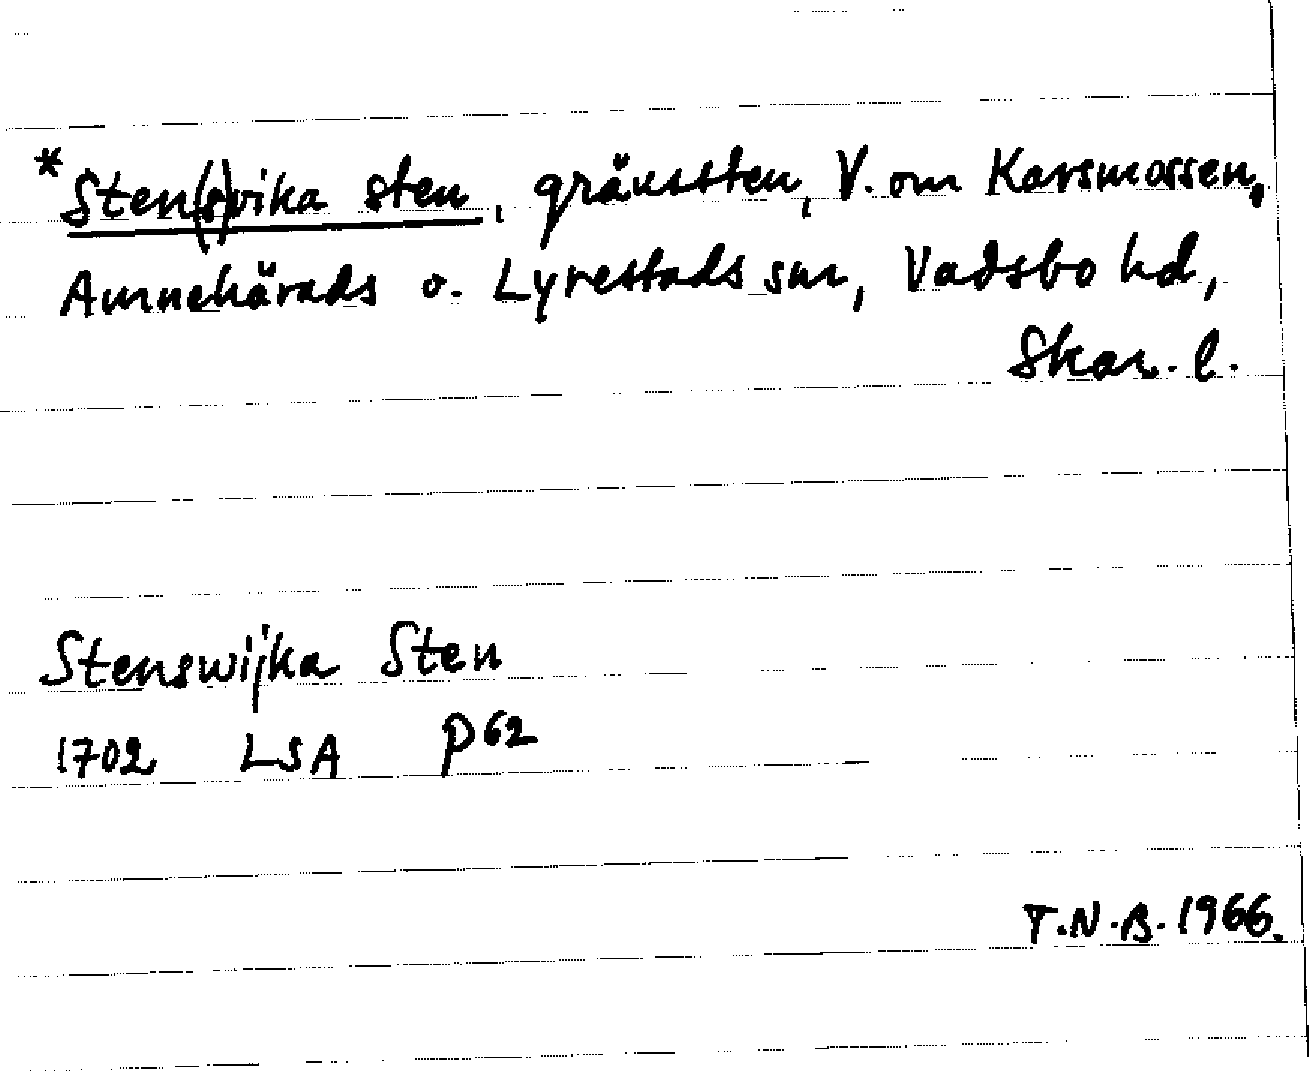 *Sten(s)vika sten, gränssten, V. om Karsmossen,
Amnehärads o. Lyrestads snr, Vadsbo hd,
Skar. l.
Stenswijka Sten
1702 LSA P 62
T.N.B. 1966.